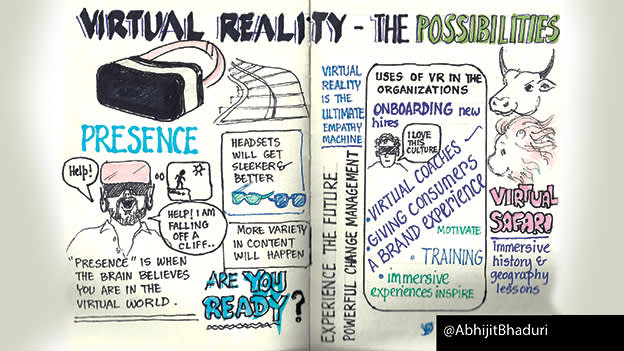 VIRTUAL REALITY - THE POSSIBILITIES
PRESENCE
Help!
HELP! I AM
FALLING
OFF A
CLIFF..
"PRESENCE" IS WHEN
THE BRAIN BELIEVES
YOU ARE IN THE
VIRTUAL WORLD.
HEADSETS
WILL GET
SLEEKER &
BETTER
MORE VARIETY
IN CONTENT
WILL HAPPEN
ARE YOU
READY?
VIRTUAL
REALITY
IS THE
ULTIMATE
EMPATHY
MACHINE
EXPERIENCE THE FUTURE.
POWERFUL CHANGE MANAGEMENT
USES OF VR IN THE
ORGANIZATIONS
ONBOARDING new
hires
I LOVE
THIS
CULTURE
• VIRTUAL COACHES
• GIVING CONSUMERS
A BRAND EXPERIENCE
MOTIVATE
• TRAINING
• immersive
experiences INSPIRE
VIRTUAL
SAFARI
Immersive
history &
geography
lessons
@AbhijitBhaduri